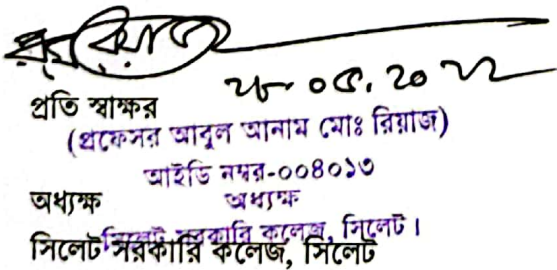 ২৮.০৫.২০২২
প্রতি স্বাক্ষর
(প্রফেসর আবুল আনাম মোঃ রিয়াজ)
আইডি নম্বর-০০৪০১৩
অধ্যক্ষ অধ্যক্ষ
সিলেট সরকারি কলেজ, সিলেট।
সিলেট সরকারি কলেজ, সিলেট